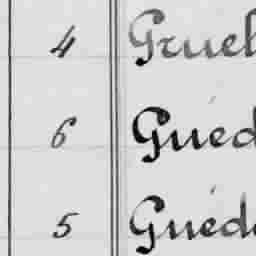 4 Gruel
6 Gued
5 Guéd